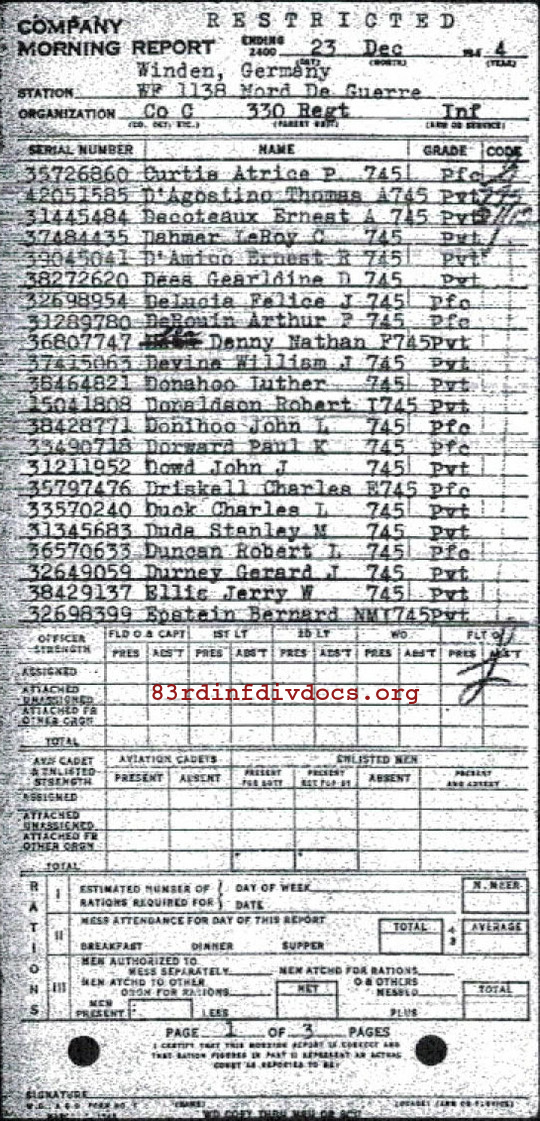 RESTRICTED
COMPANY
MORNING REPORT ENDING 2400 23 Dec 194 4
(DAY) (MONTH) (YEAR)
Winden, Germany
STATION WF 1138 Nord De Guerre
ORGANIZATION Co C 330 Regt Inf
(CO, DET, ETC.) (PARENT UNIT) (ARM OR SERVICE)
SERIAL NUMBER NAME GRADE CODE
35726860 Curtis Atrice P 745 Pfc
42051585 D'Agostino Thomas A745 Pvt
31445484 Dacoteaux Ernest A 745 Pvt
37484435 Dahmer LeRoy C 745 Pvt
39045041 D'Amico Ernest R 745 Pvt
38272620 Dees Gearldine D 745 Pvt
32698954 DeLucia Felice J 745 Pfc
31289780 DeRouin Arthur P 745 Pfc
36807747 Denny Nathan F745Pvt
37415063 Devine William J 745 Pvt
38464821 Donahoo Luther 745 Pvt
15041808 Donaldson Robert I745 Pvt
38428771 Donihoo John L 745 Pfc
33490718 Dorward Paul K 745 Pfc
31211952 Dowd John J 745 Pvt
35797476 Driskell Charles E745 Pfc
33570240 Duck Charles L 745 Pvt
31345683 Duda Stanley M 745 Pvt
36570633 Duncan Robert L 745 Pfc
32649059 Durney Gerard J 745 Pvt
38429137 Ellis Jerry W 745 Pvt
32698399 Epstein Bernard NMI745Pvt
OFFICER STRENGTH FLD O & CAPT 1ST LT 2D LT WO FLT O
PRES ABS'T PRES ABS'T PRES ABS'T PRES ABS'T PRES ABS'T
ASSIGNED
ATTACHED UNASSIGNED
83rdinfdivdocs.org
ATTACHED FR OTHER ORGN
TOTAL
AVN CADET & ENLISTED STRENGTH AVIATION CADETS ENLISTED MEN
PRESENT ABSENT PRESENT FOR DUTY PRESENT NOT FOR DY ABSENT PRESENT AND ABSENT
ASSIGNED
ATTACHED UNASSIGNED
ATTACHED FR OTHER ORGN
TOTAL
RATIONS
I ESTIMATED NUMBER OF DAY OF WEEK NUMBER
RATIONS REQUIRED FOR DATE
II MESS ATTENDANCE FOR DAY OF THIS REPORT TOTAL AVERAGE
BREAKFAST DINNER SUPPER
III MEN AUTHORIZED TO MESS SEPARATELY MEN ATCHD FOR RATIONS
MEN ATCHD TO OTHER ORGN FOR RATIONS NET O & OTHERS MESSED TOTAL
MEN PRESENT LESS PLUS
PAGE 1 OF 3 PAGES
I CERTIFY THAT THIS MORNING REPORT IS CORRECT AND
THAT RATION FIGURES IN PART II REPRESENT AN ACTUAL
COUNT AS REPORTED TO ME:
SIGNATURE